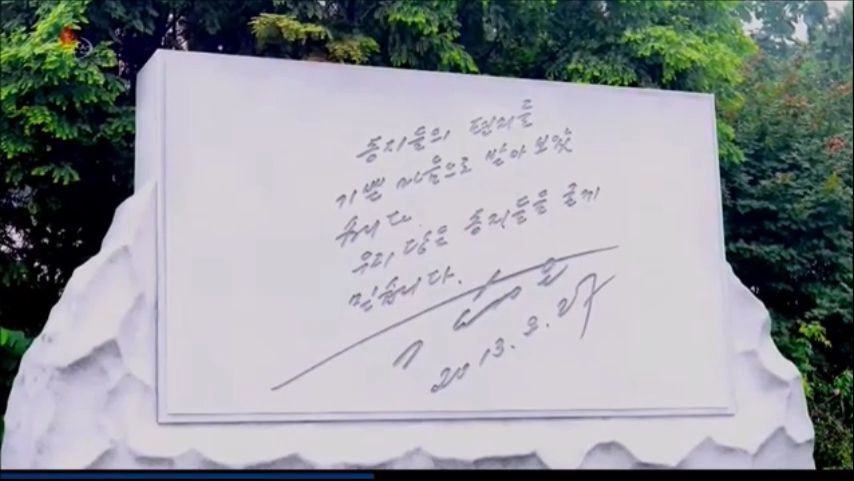 동지들의 편지를
기쁜 마음으로 받아보았
습니다.
우리 당은 동지들을 굳게
믿습니다.
김정은
2013. 9. 27